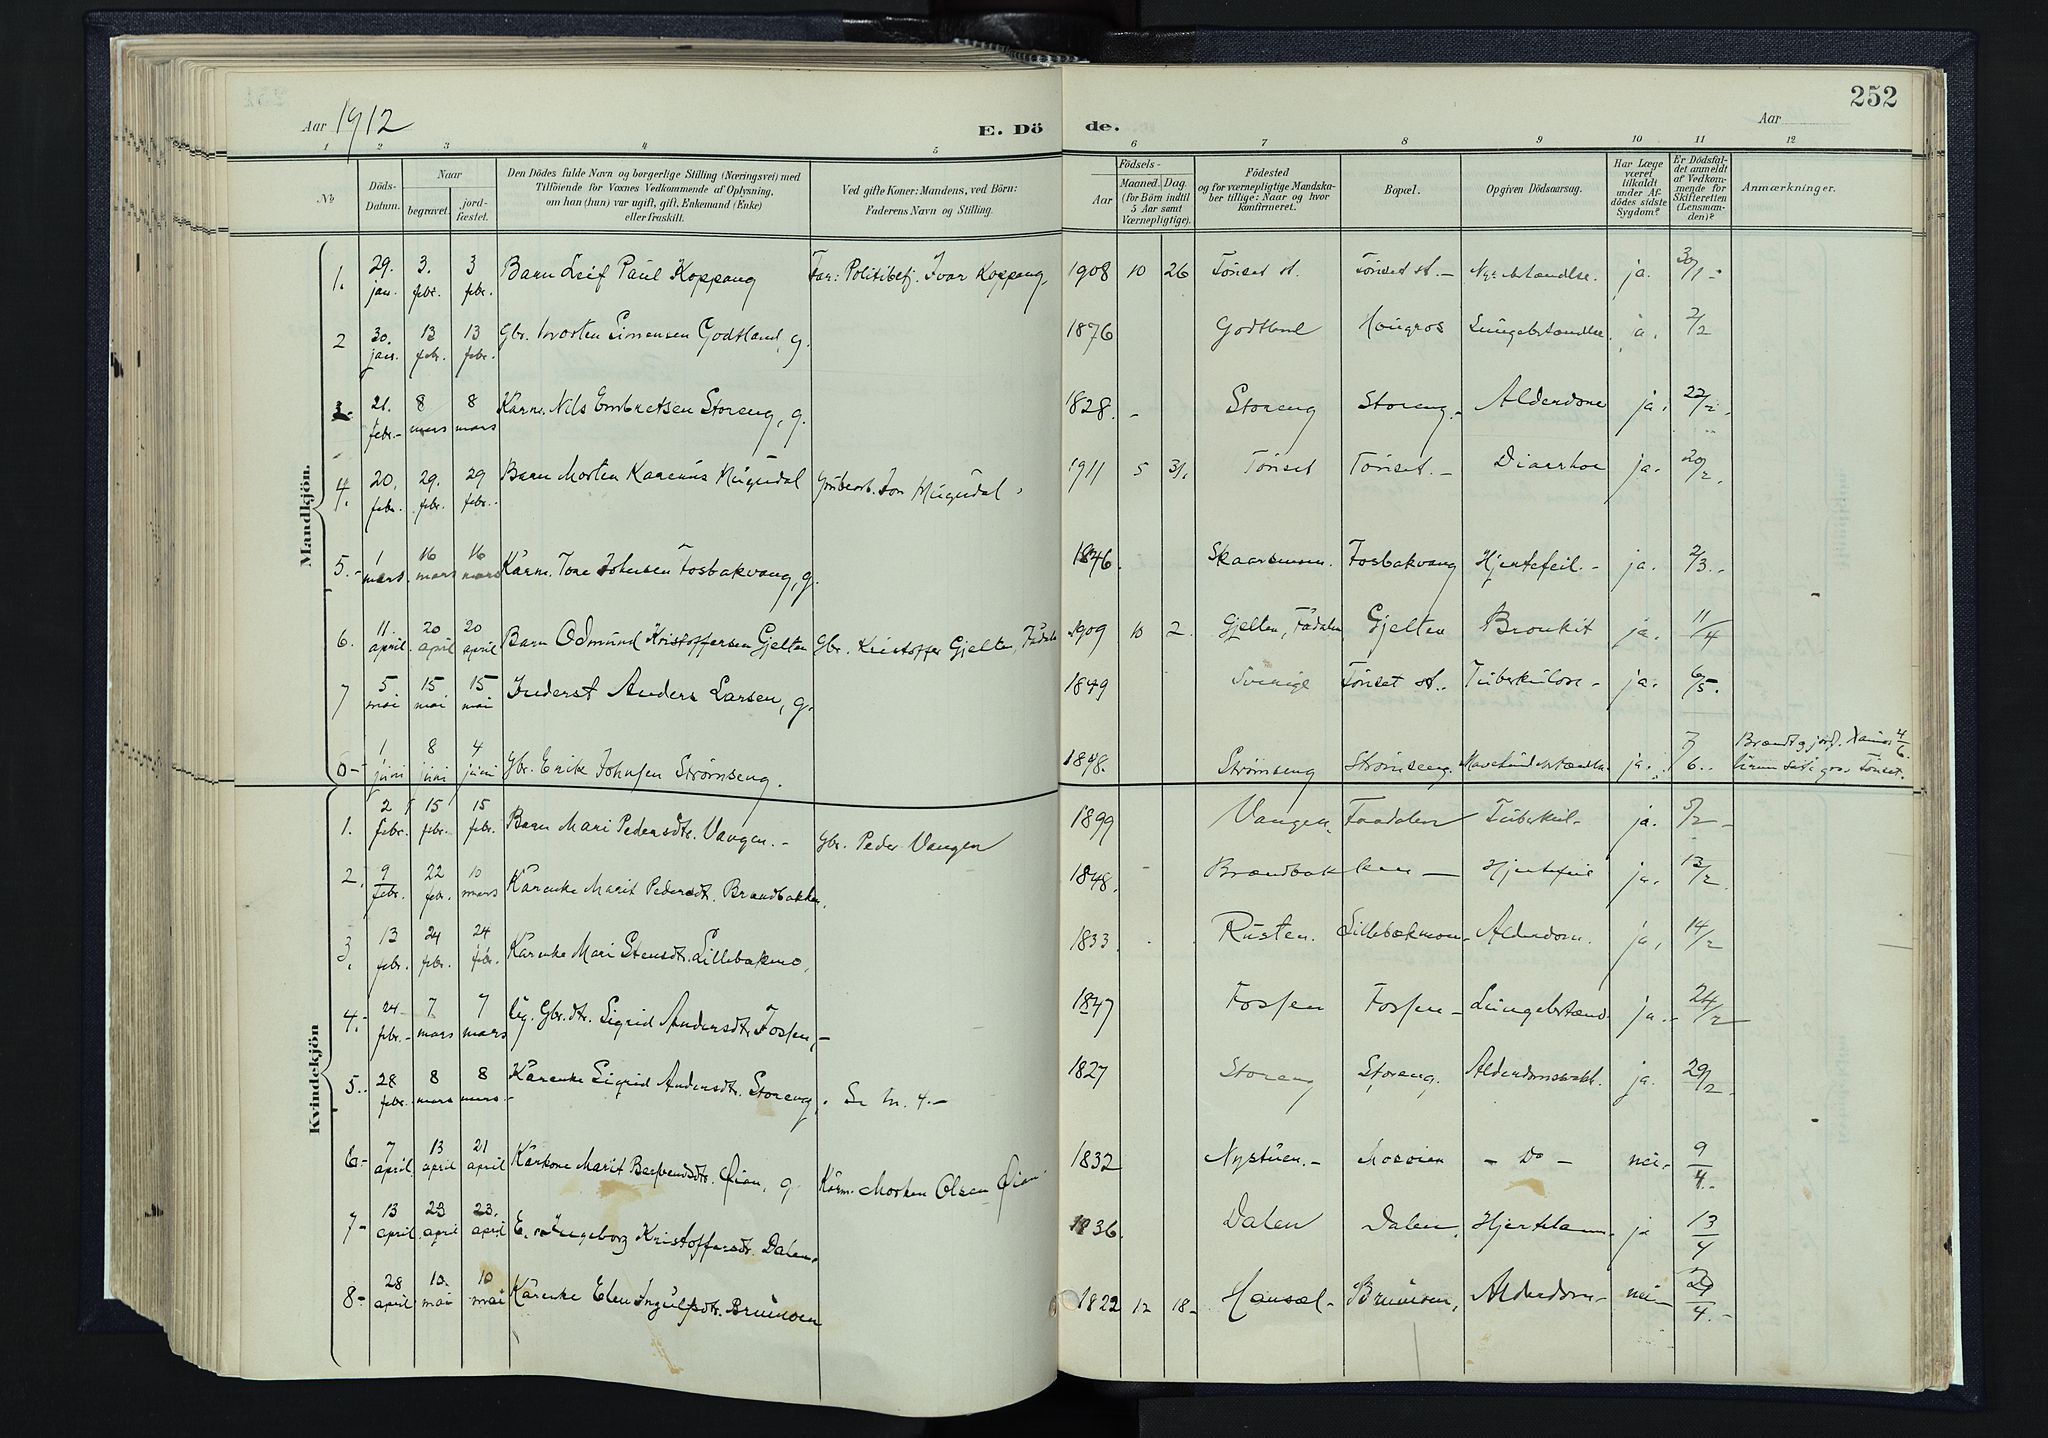 252
Aar 1912
E. Dö de.
Aar
1 2 3 4 5 6 7 8 9 10 11 12
№
Döds-Datum.
Naar
begravet.
jord-fæstet.
Den Dödes fulde Navn og borgerlige Stilling (Næringsvei) med
Tilföiende for Voxnes Vedkommende af Oplysning,
om han (hun) var ugift, gift, Enkemand (Enke)
eller fraskilt.
Ved gifte Koner: Mandens, ved Börn:
Faderens Navn og Stilling.
Födsels-
Aar
Maaned. Dag.
(for Börn indtil
5 Aar samt
Værnepligtige).
Födested
og for værnepligtige Mandska-
ber tillige: Naar og hvor
konfirmeret.
Bopæl.
Opgiven Dödsaarsag.
Har Læge
været
tilkaldt
under Af-
dödes sidste
Sygdom?
Er Dödsfal-
det anmeldt
af Vedkom-
mende for
Skifteretten
(Lensman-
den)?
Anmærkninger.
Mandkjön.
1. 29. jan. 3. febr. 3 febr. Barn Leif Paul Koppang Far: Politibetj. Ivar Koppang, 1908 10 26 Tönset st. Tönset st. - Nyrebetændlse. ja. 30/1 -
2 30. jan. 13 febr. 13 febr. Gbr. Morten Simensen Godtland, g. 1876 Godtland Lungebetændlse. ja. 2/2
3- 21. febr.- 8 mars 8 mars Kårm. Nils Embretsen Storeng, g. 1828. - Storeng Storeng.- Alderdom ja. 22/2.
4. 20. febr. 29. febr. 29 febr. Barn Morten Karenus Hügudal Jon Hügudal 1911 5 31. Tönset Tönset. - Diarrhoe ja. 20/2.
5.- 1 mars. 16 mars 16 mars Kårm. Tore Johnsen Fosbakvang, g. 1846. Fosbakvang Hjertefeil. - ja. 2/3.-
6. 11. april. 20 april 20 april Barn Odmund Kristoffersen Gjelten Gbr. Kristoffer Gjelten, Fådalen 1909 10 2. Gjelten, Fådalen Gjelten Bronkit ja. 11/4
7 5 mai 15 mai 15 mai Inderst Anders Larsen, g. 1849 Sverige Tönset st.. Tüberkülose - ja. 6/5.
8- 1 jüni 8 jüni 4 jüni Gbr. Erik Johnsen Strømseng. 1848. Strømseng Strømseng. ja. 7/6.. 4/6 Tönset.
Kvindekjön
1. 2 febr. 15 febr. 15 febr. Barn Mari Pedersdtr. Vangen. - Gbr. Peder Vangen 1899 Vangen. Faadalen Tüberkül. ja. 5/2 -
2. 9 febr. 22 febr. 10 mars Kårenke Marit Pedersdt. Brandbakken. 1848. - Brændbakken - Hjertefeil ja. 12/2.
3. 13 febr. 24 febr. 24 febr. Kårenke Mari Stensdtr. Lillebakmo, 1833. Rüsten. Lillebækmoen. Alderdom. ja. 14/2
4.- 24 febr.- 7 mars 7 mars Ug. Gbr.dtr. Sigrid Andersdtr. Fossen, - 1847 Fossen Fossen - Lüngebetænd. ja. - 24/2
5.- 28 febr. 8 mars 8 mars Kårenke Sigrid Andersdtr. Storeng, 1827 Storeng Storeng. ja. 29/2.
6- 7 april. 13 april 21 april Kårkone Marit Bersvendsdtr. Øian, g. Kårm. Morten Olsen Øian 1832 Nystüen. - Mosøien - Do - nei. 9/4.-
7- 13 april. 23 april 23. april Ingeborg Kristoffersdtr. Dalen. 1836. Dalen Dalen. ja 13/4
8- 28 april. 10. mai 10 mai Kårenke Elen Ingülfsdtr. Brünøien 1822 12 18- Alderdom - nei - 29/4.-